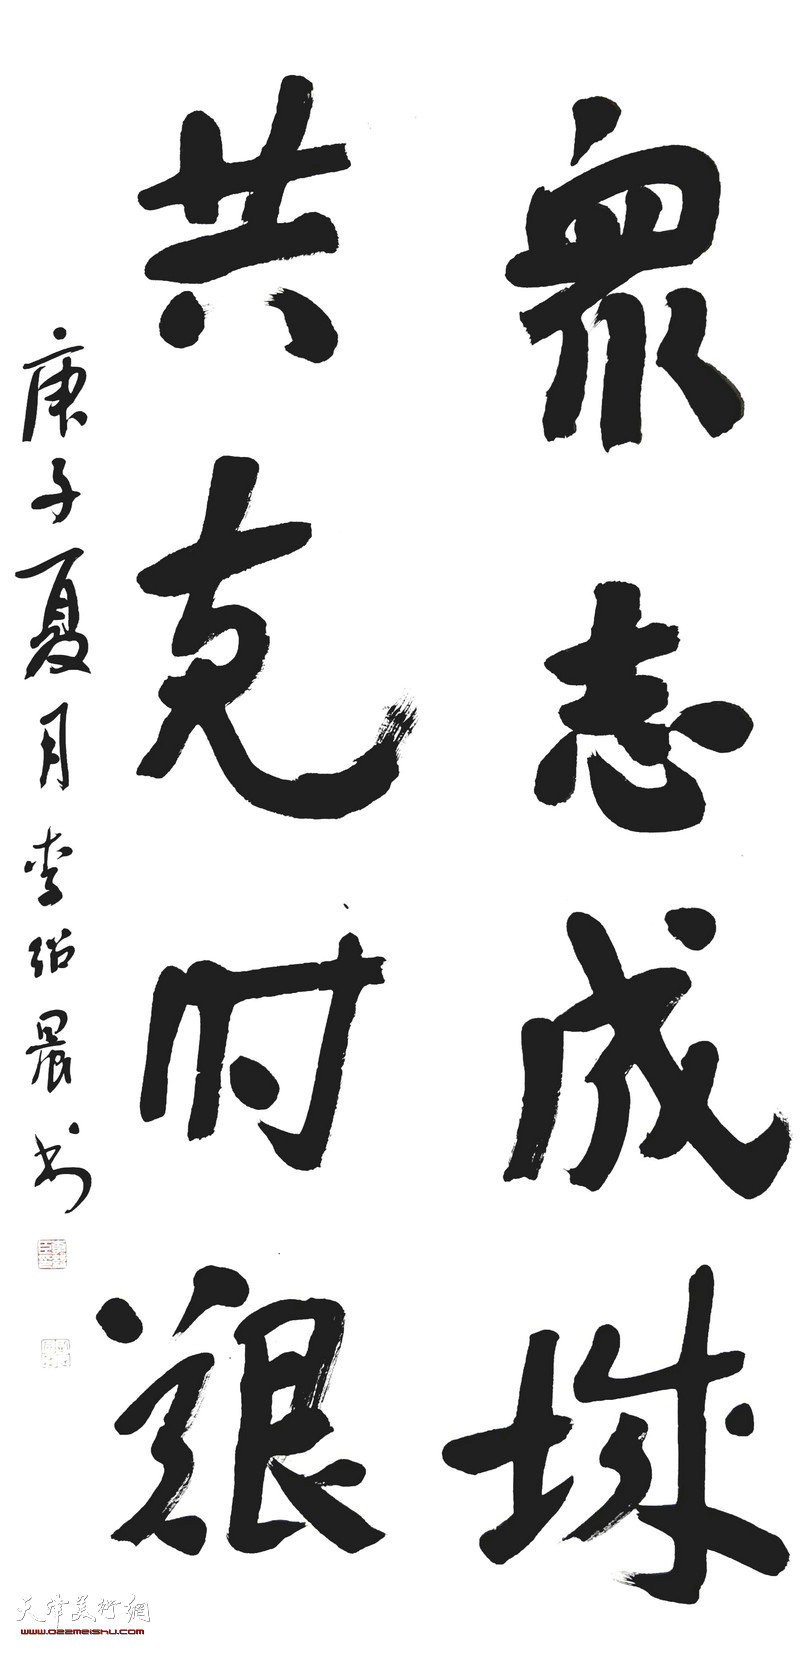 眾志成城
共克时艱
庚子夏月李绍晨书
天津美術網
www.022meishu.com